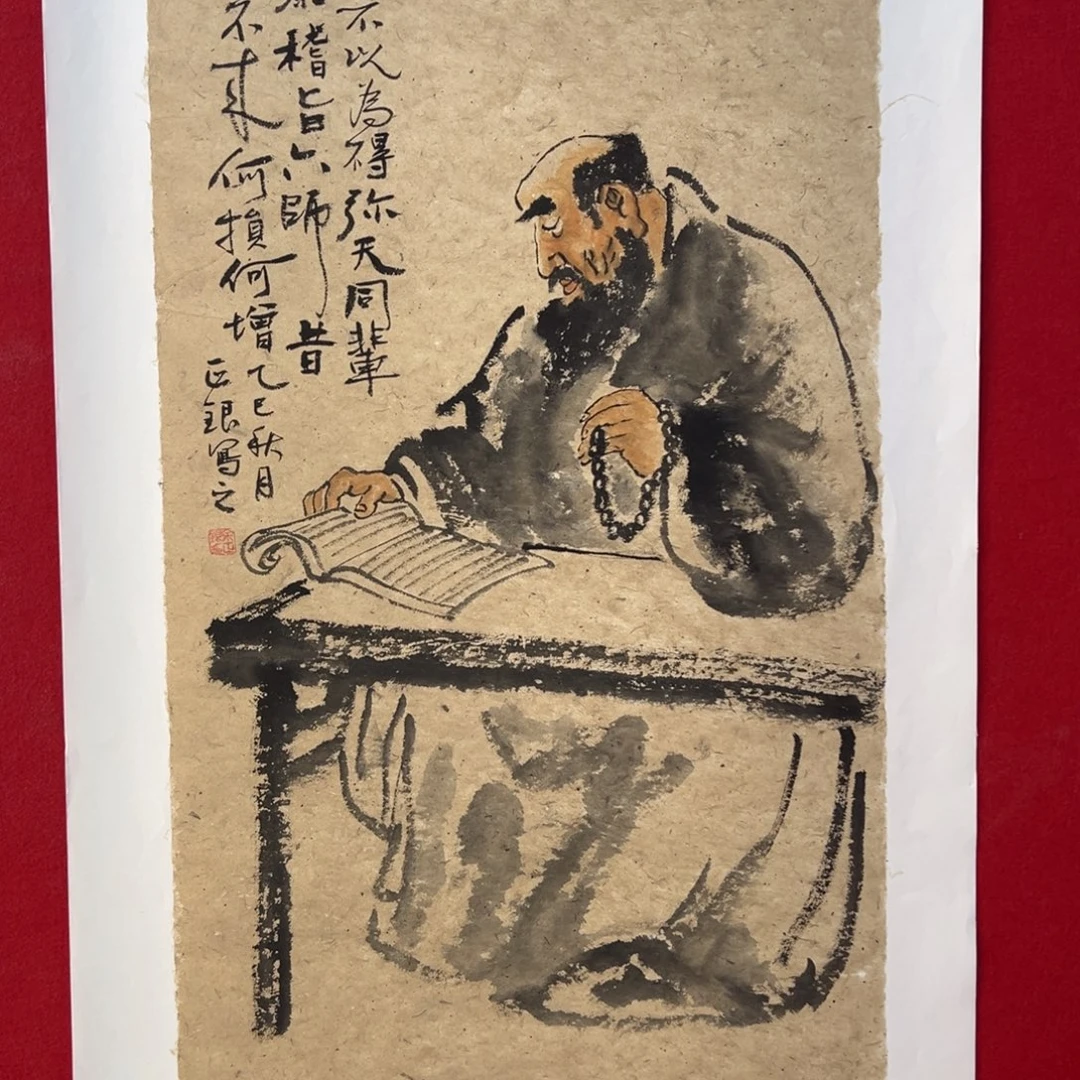 不以為得弥天同輩
稽旨六師昔
不来何損何增乙巳秋月
正銀寫之